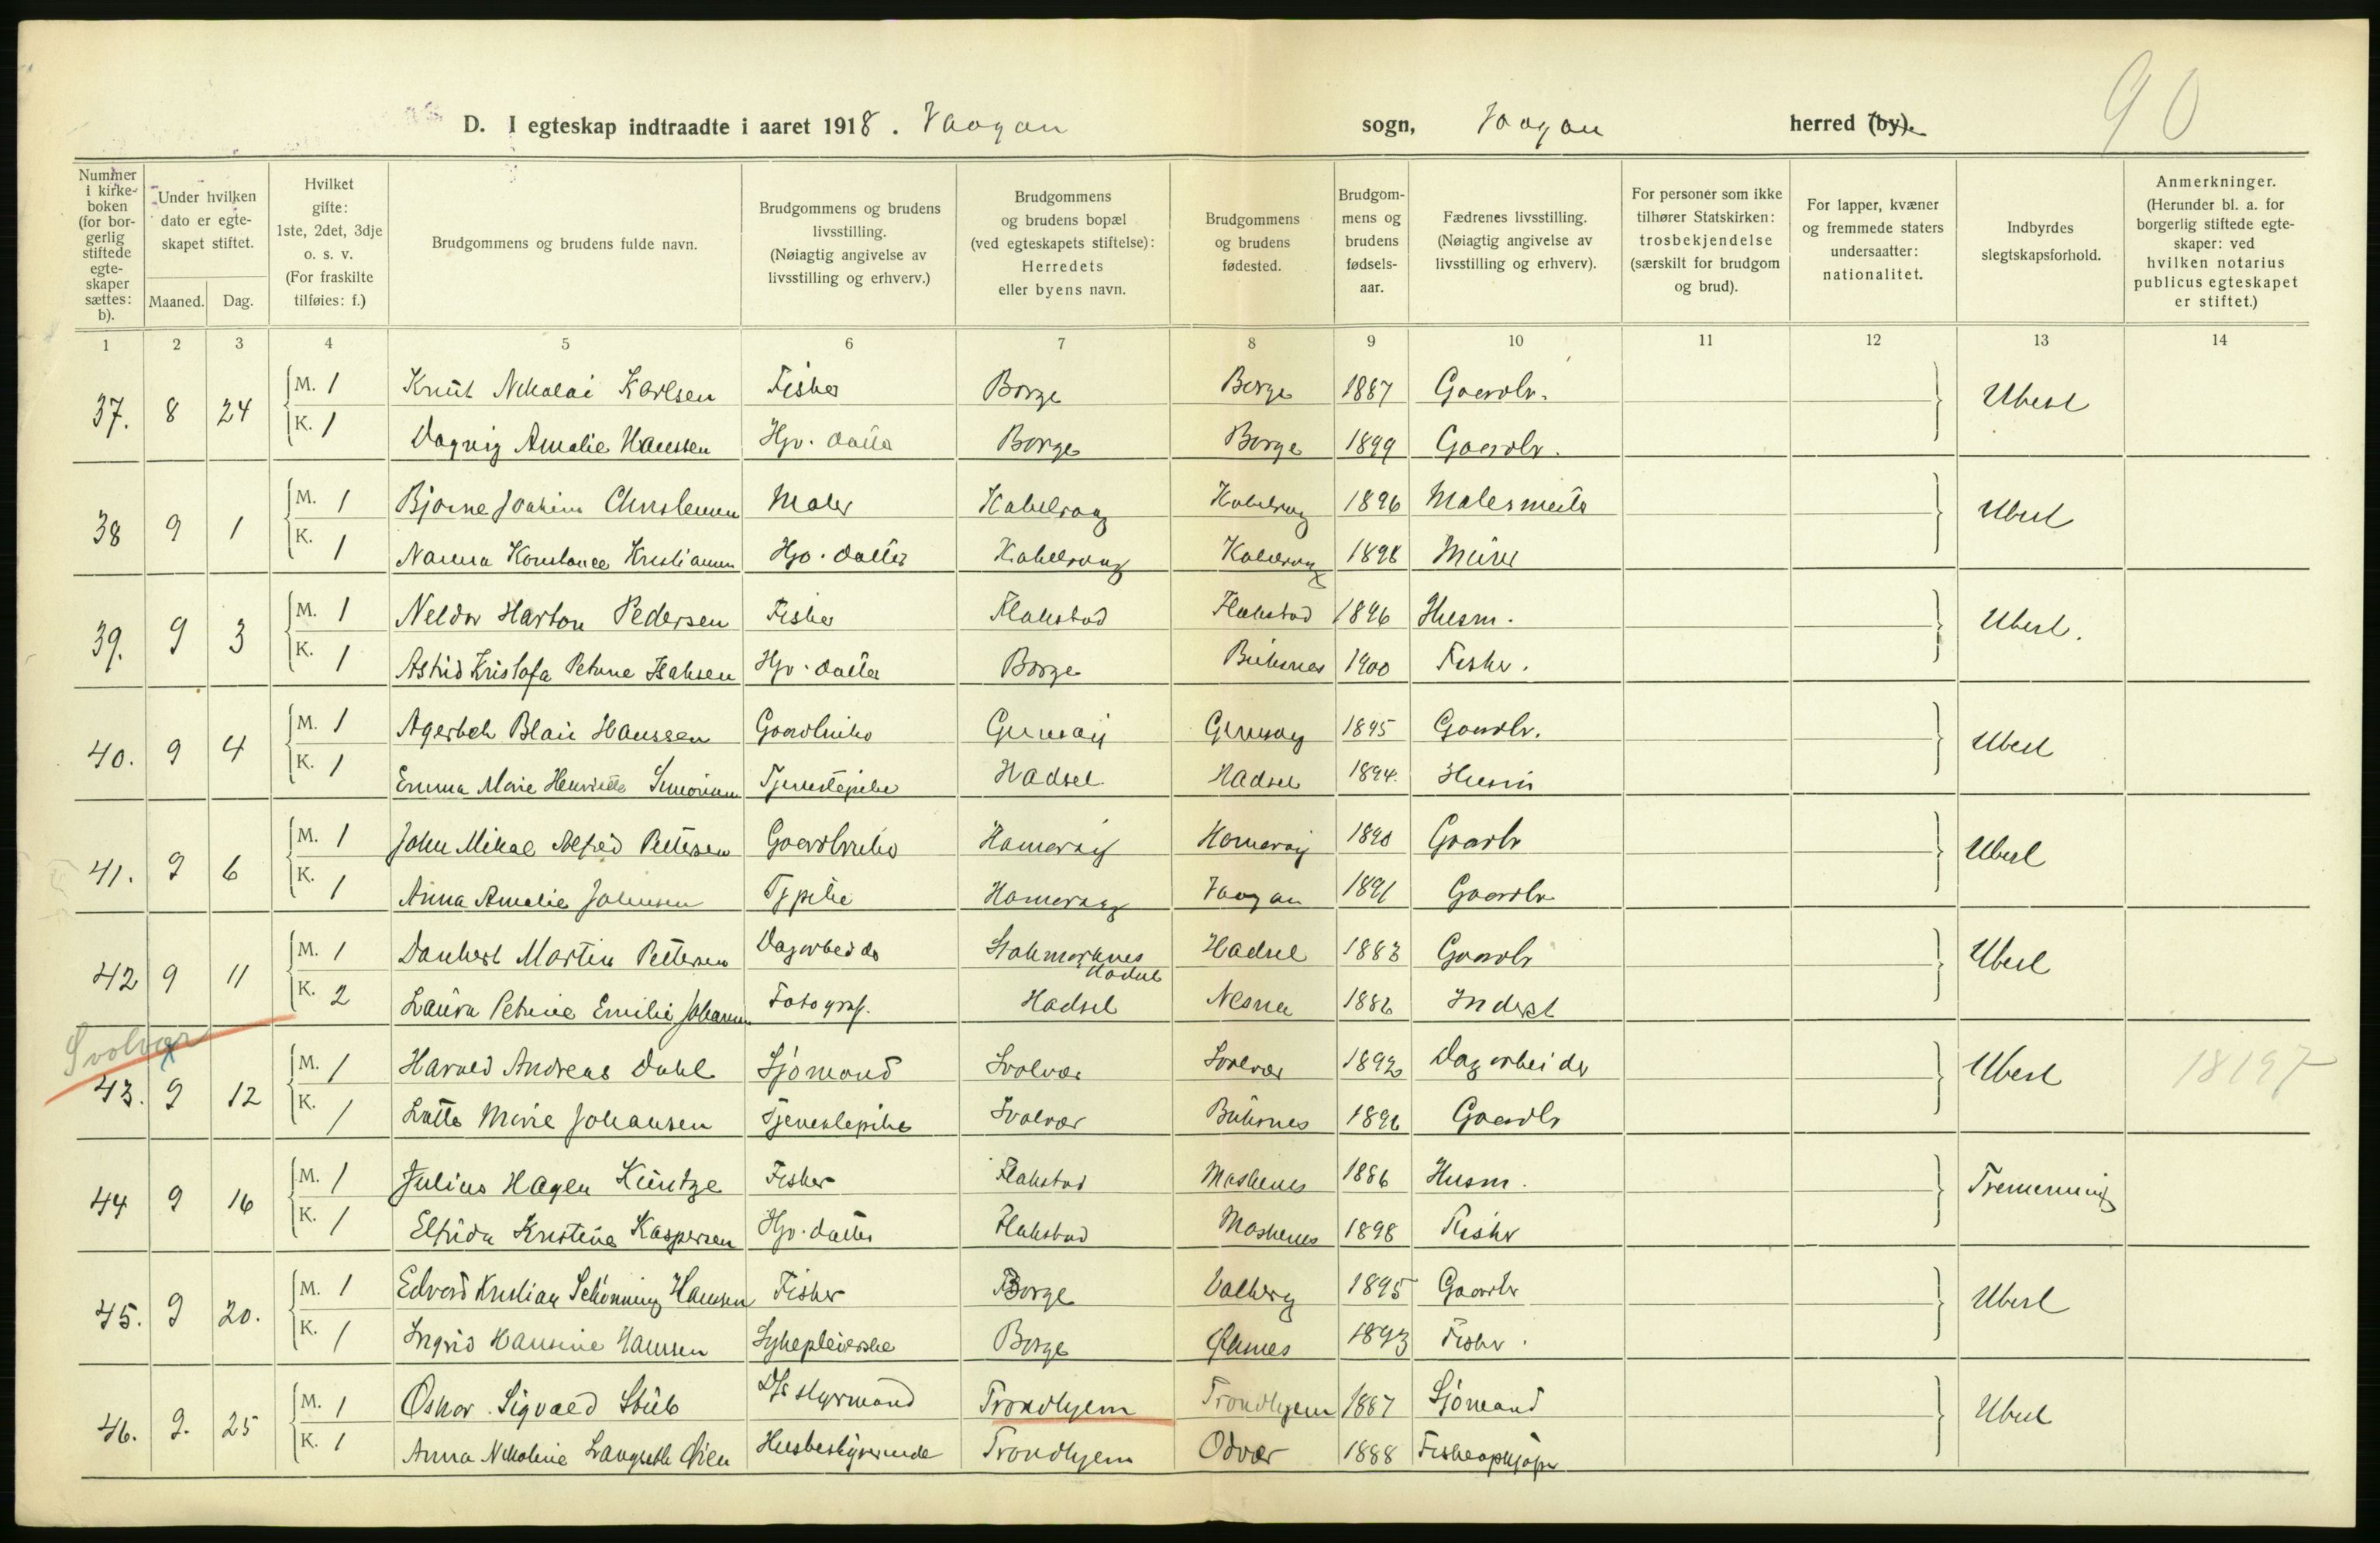 90
D. I egteskap indtraadte i aaret 1918. Vaagan sogn, Vaagan herred (by).
Nummer i kirkeboken (for borgerlig stiftede egteskaper sættes: b).
Under hvilken dato er egteskapet stiftet.
Maaned. Dag.
Hvilket gifte: 1ste, 2det, 3dje o. s. v. (For fraskilte tilføies: f.)
Brudgommens og brudens fulde navn.
Brudgommens og brudens livsstilling. (Nøiagtig angivelse av livsstilling og erhverv.)
Brudgommens og brudens bopæl (ved egteskapets stiftelse): Herredets eller byens navn.
Brudgommens og brudens fødested.
Brudgommens og brudens fødselsaar.
Fædrenes livsstilling. (Nøiagtig angivelse av livsstilling og erhverv).
For personer som ikke tilhører Statskirken: trosbekjendelse (særskilt for brudgom og brud).
For lapper, kvæner og fremmede staters undersaatter: nationalitet.
Indbyrdes slegtskapsforhold.
Anmerkninger. (Herunder bl. a. for borgerlig stiftede egteskaper: ved hvilken notarius publicus egteskapet er stiftet.)
1 2 3 4 5 6 7 8 9 10 11 12 13 14
37. 8 24 M. 1 Knut Nikolai Karlsen Fisker Borge Borge 1887 Gaardbr. Ubesl
K. 1 Dagvig Amalie Hanssen Hjv. datter Borge Borge 1899 Gaardbr.
38 9 1 M. 1 Bjarne Joakim Christensen Maler Kabelvaag Kabelvaag 1896 Malermester Ubesl
K. 1 Nanna Konstance Kristiansen Hjv. datter Kabelvaag Kabelvaag 1898 Murer
39. 9 3 M. 1 Neldor Harton Pedersen Fisker Flakstad Flakstad 1896 Husm. Ubesl.
K. 1 Astrid Kristofa Petrine Isaksen Hjv. datter Borge Buksnes 1900 Fisker.
40. 9 4 M. 1 Agerbek Blair Hanssen Gaardbruker Gimsøy Gimsøy 1895 Gaardbr. Ubesl
K. 1 Emma Marie Henriette Simonsen Tjenestepike Hadsel Hadsel 1894. Husm
41. 9 6 M. 1 John Mikal Alfred Pettersen Gaardbruker Hamarøy Hamarøy 1890 Gaardbr Ubesl
K. 1 Anna Amalie Johnsen Tjpike Hamarøy Vaagan 1891 Gaardbr
42 9 11 M. 1 Dankert Martin Pettersen Dagarbeider Stokmarknes Hadsel Hadsel 1883 Gaardbr Ubesl
K. 2 Laura Petrine Emilie Johansen Fotograf. Hadsel Nesna 1886 Inderst
Svolvær
43. 9 12 M. 1 Harald Andreas Dahl Sjömand Svolvær Svolvær 1892 Dagarbeider Ubesl 18197
K. 1 Lotte Marie Johansen Tjenestepike Svolvær Buksnes 1896 Gaardbr
44 9 16 M. 1 Julius Hagen Küntze Fisker Flakstad Moskenes 1886 Husm. Tremenning
K. 1 Elfrida Kristine Kaspersen Hjv. datter Flakstad Moskenes 1898 Fisker
45. 9 20. M. 1 Edvard Kristian Schönning Hansen Fisker Borge Valberg 1895 Gaardbr Ubesl
K. 1 Ingrid Hansine Hansen Sykepleierske Borge 1893 Fisker.
46. 9. 25 M. 1 Oskar Sigvald Stüb styrmand Trondhjem Trondhjem 1887 Sjömand Ubesl
K. 1 Anna Nikoline Langseth Öien Husbestyrerinde Trondhjem Odvær 1888 Fiskeopkjøper